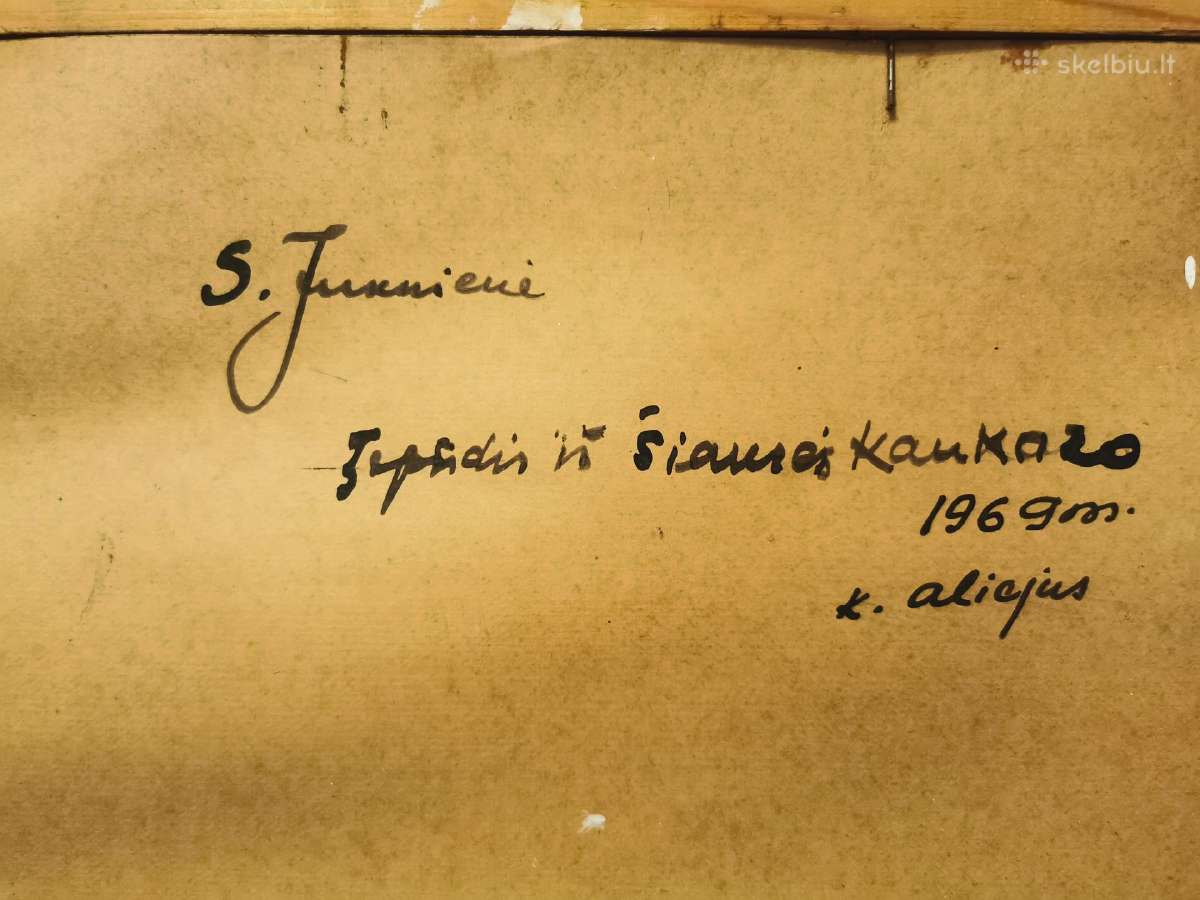 skelbiu.lt
S. Juknienė
Įspūdis iš Šiaurės Kaukazo
1969 m.
k. aliejus